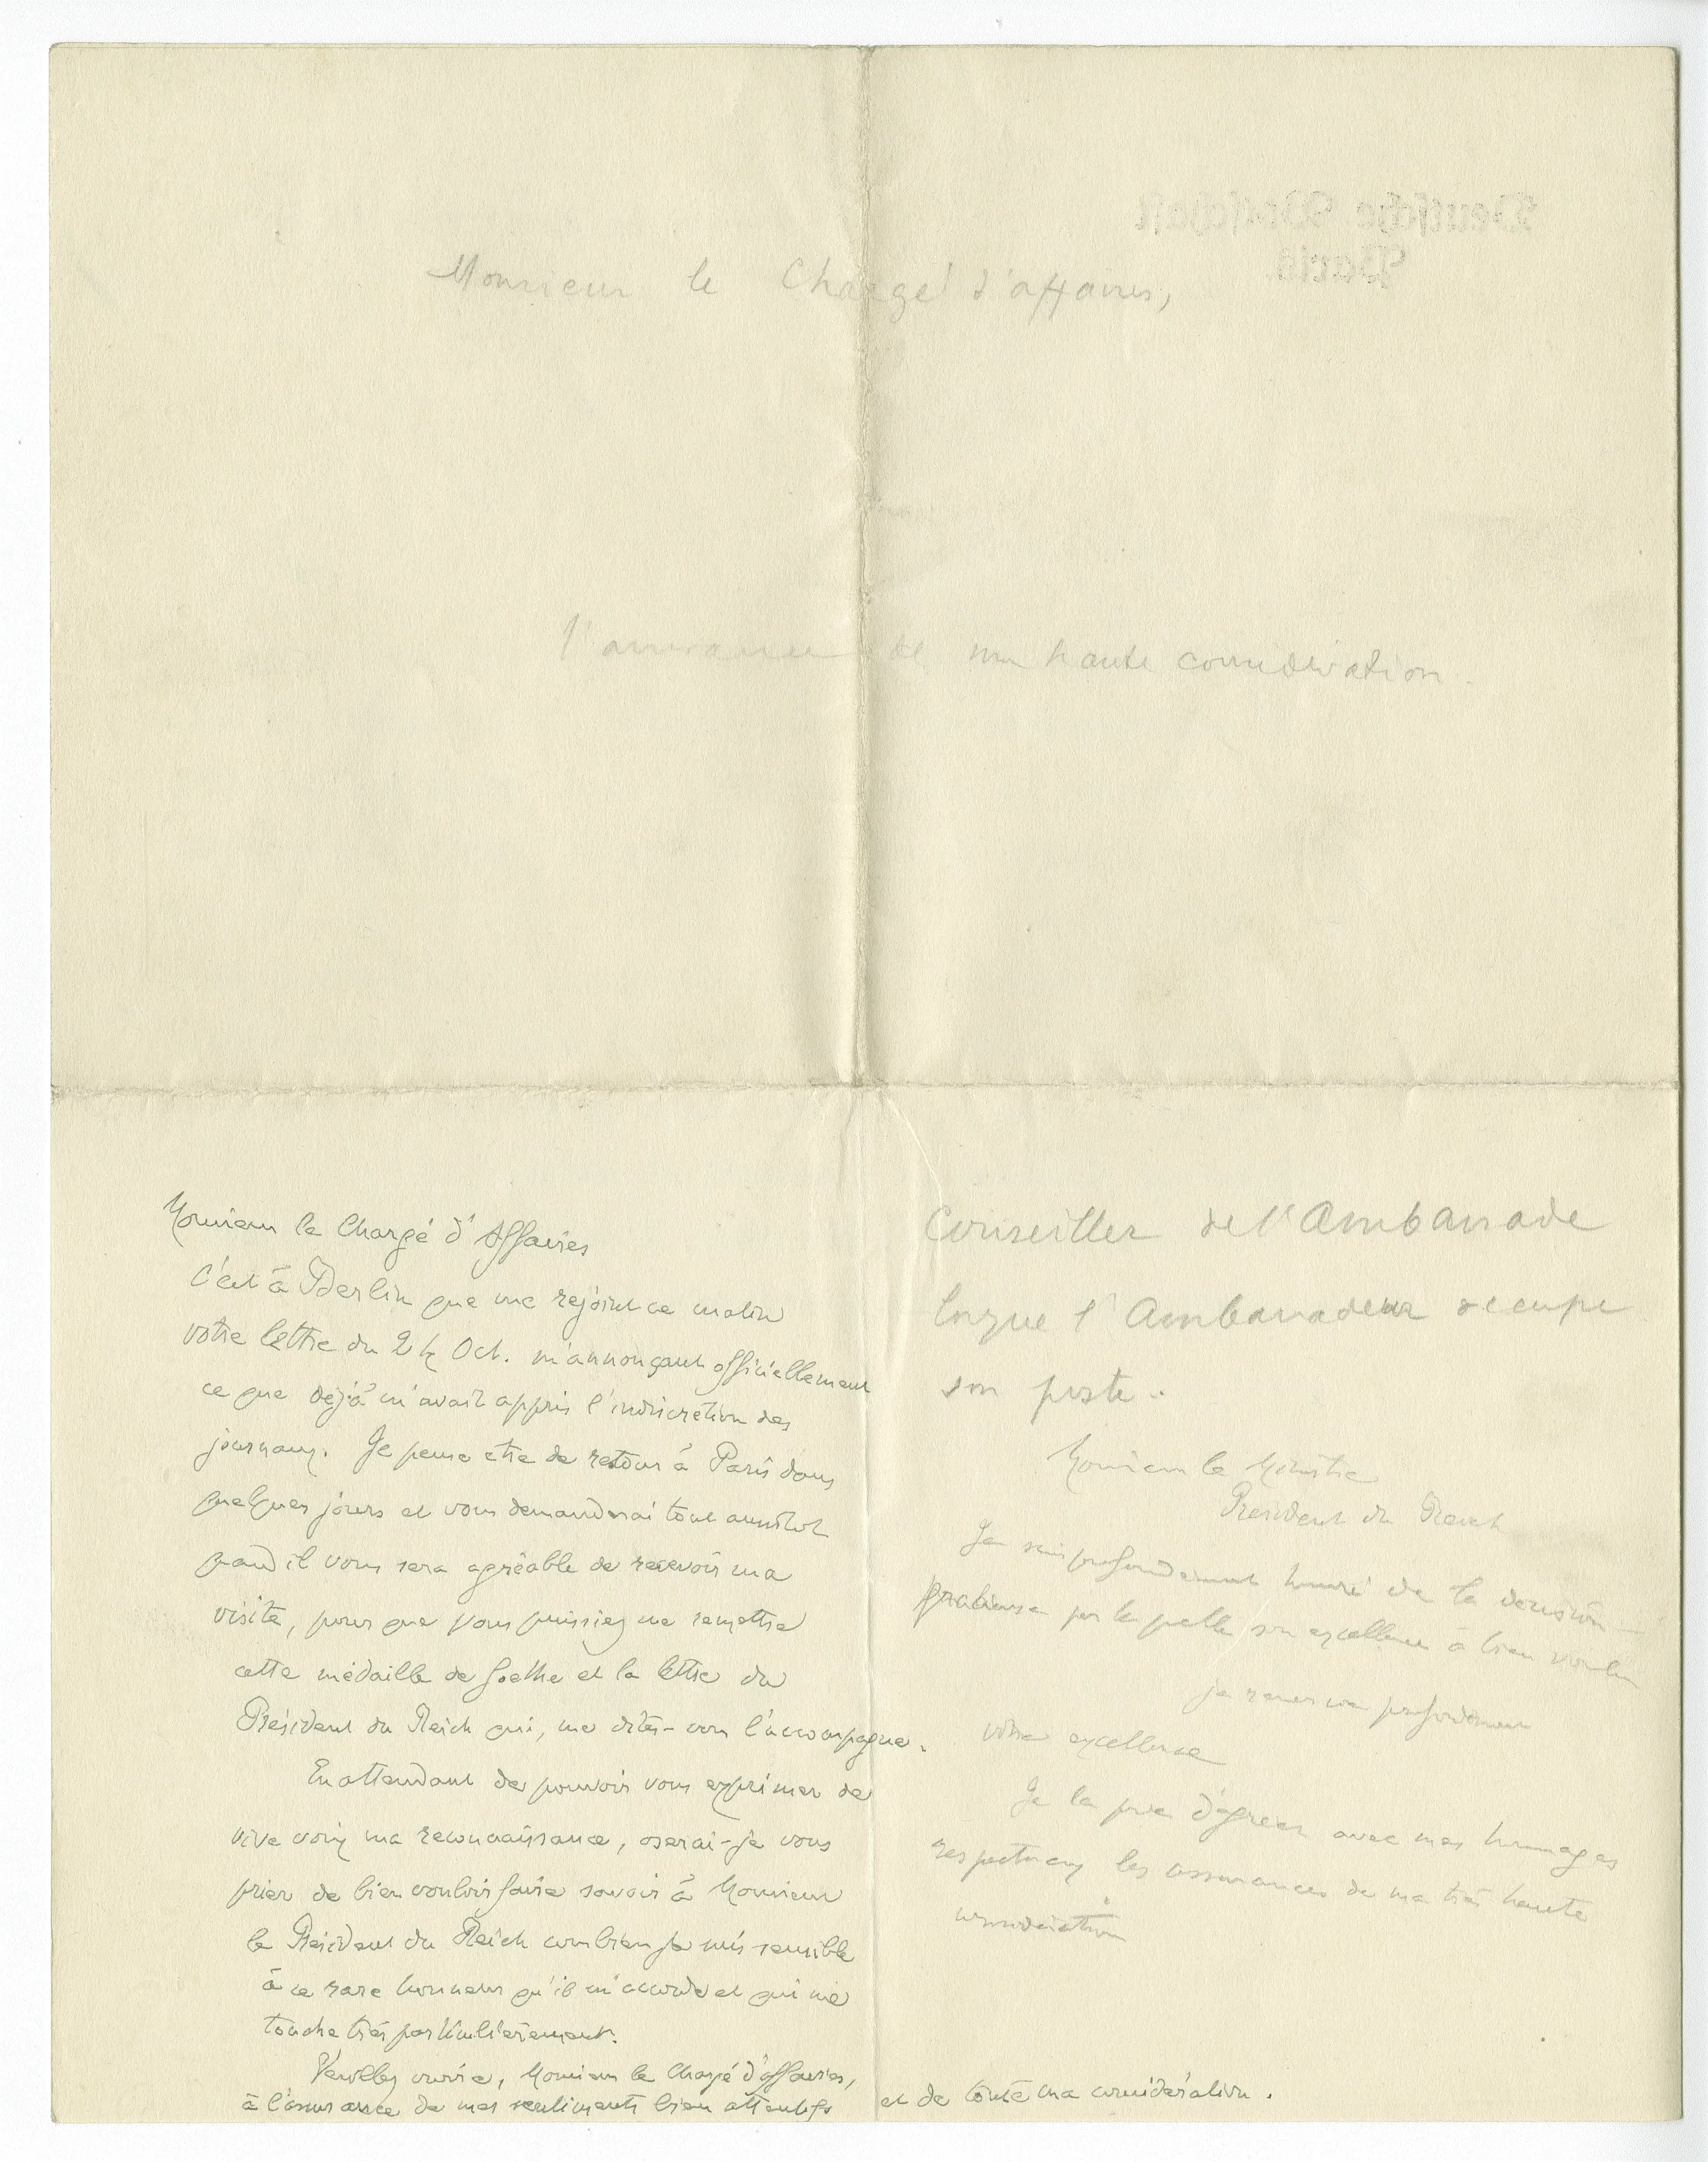 Deutsche Botschaft
Paris
Monsieur le Chargé d'affaires,
l'assurance de ma haute considération.
Monsieur le Chargé d'Affaires
C'est à Berlin que me rejoint ce matin
votre lettre du 24 Oct. m'annonçant officiellement
ce que déjà m'avait appris l'indiscrétion des
journaux. Je pense etre de retour à Paris dans
quelques jours et vous demanderai tout aussitot
quand il vous sera agréable de recevoir ma
visite, pour que vous puissiez me remettre
cette médaille de Goethe et la lettre du
Président du Reich qui, me dites-vous l'accompagne.
En attendant de pouvoir vous exprimer de
vive voix ma reconnaissance, oserai-je vous
prier de bien vouloir faire savoir à Monsieur
le Président du Reich combien je suis sensible
à ce rare honneur qu'il m'accorde et qui me
touche très particulièrement.
Veuillez croire, Monsieur le Chargé d'affaires,
à l'assurance de mes sentiments bien attentifs et de toute ma considération.
Conseiller de l'Ambassade
lorsque l'Ambassadeur occupe
son poste.
Monsieur le Ministre
Président du Reich
Je suis profondément honoré de la décision
gracieuse par laquelle son excellence a bien voulu
je remercie profondément
votre excellence
Je la prie d'agréer avec mes hommages
respectueux les assurances de ma très haute
considération